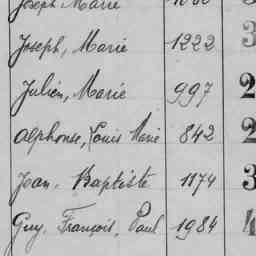 Joseph, Marie
Joseph, Marie 1222 3
Julien, Marie 997 2
Alphonse, Louis Marie 842 2
Jean-Baptiste 1174 3
Guy, François, Paul 1984 4